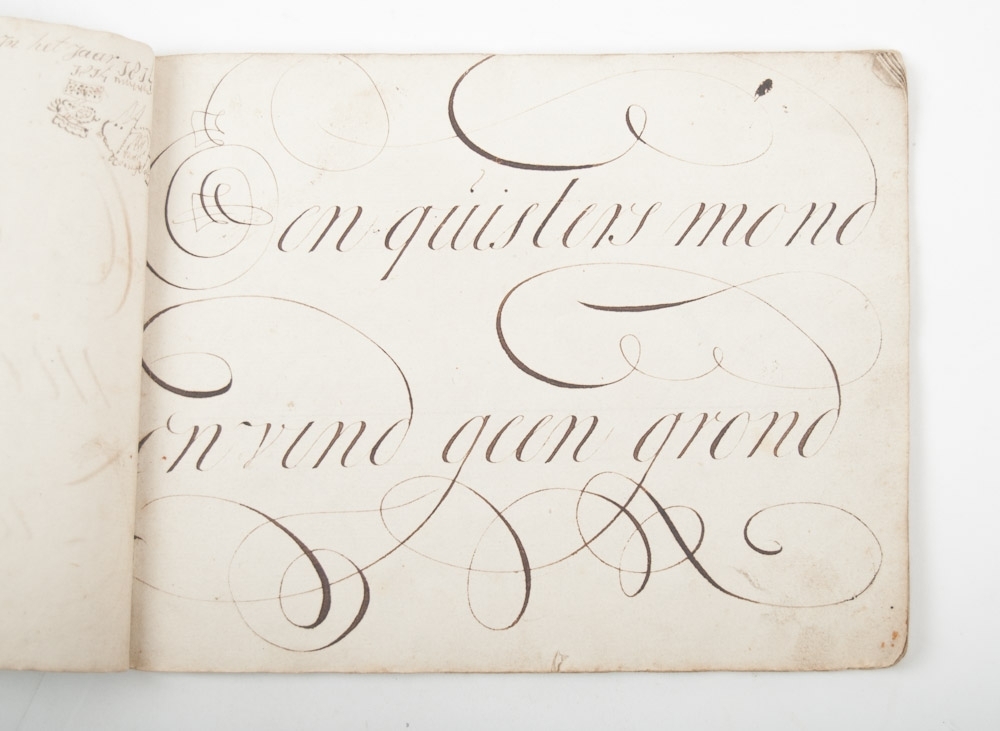 in het jaar 1814
1814
Een quisters mond
en vind geen grond